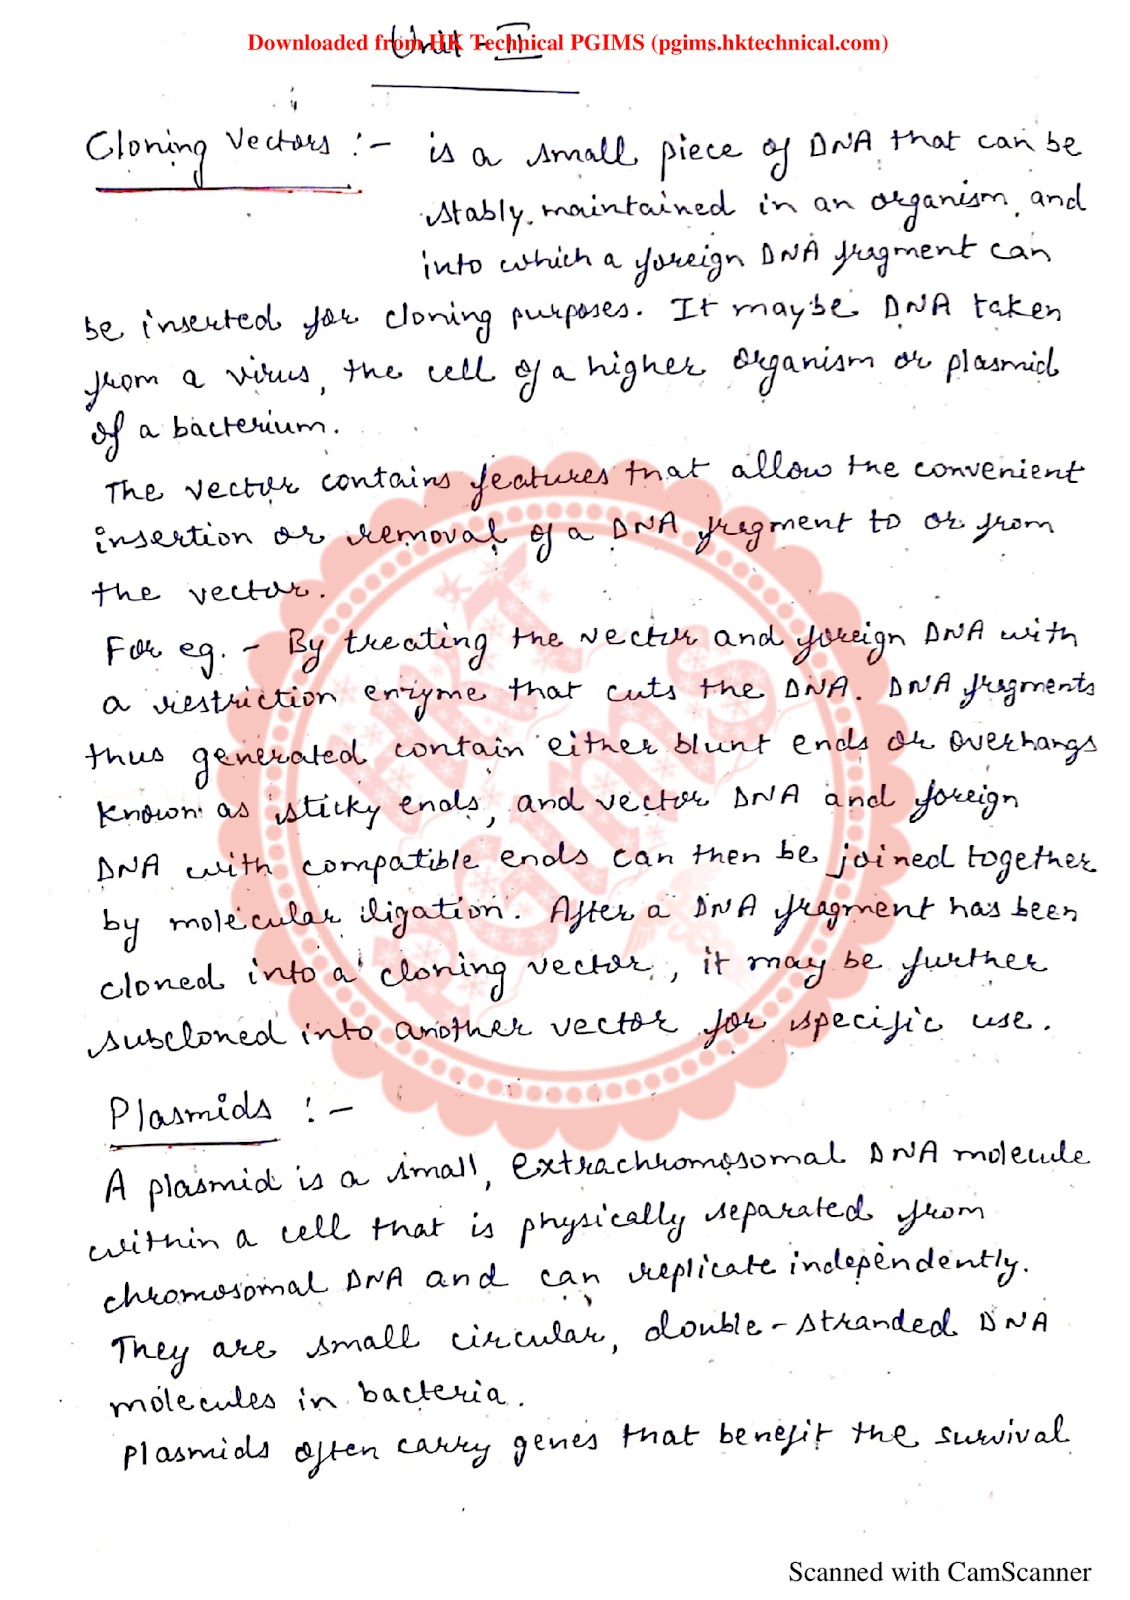 Downloaded from HK Technical PGIMS (pgims.hktechnical.com)
Unit - II
Cloning Vectors :- is a small piece of DNA that can be
stably maintained in an organism, and
into which a foreign DNA fragment can
be inserted for cloning purposes. It maybe DNA taken
from a virus, the cell of a higher organism or plasmid
of a bacterium.
The vector contains features that allow the convenient
insertion or removal of a DNA fragment to or from
the vector.
For eg. - By treating the vector and foreign DNA with
a restriction enzyme that cuts the DNA. DNA fragments
thus generated contain either blunt ends or overhangs
known as sticky ends, and vector DNA and foreign
DNA with compatible ends can then be joined together
by molecular ligation. After a DNA fragment has been
cloned into a cloning vector, it may be further
subcloned into another vector for specific use.
Plasmids :-
A plasmid is a small, extrachromosomal DNA molecule
within a cell that is physically separated from
chromosomal DNA and can replicate independently.
They are small circular, double-stranded DNA
molecules in bacteria.
Plasmids often carry genes that benefit the survival
HKT
PGIMS
Scanned with CamScanner